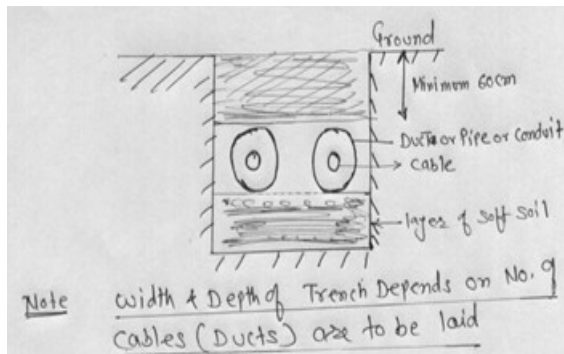 Ground
Minimum 60cm
Ducts or Pipe or Conduit
Cable
layer of soft soil
Note Width & Depth of Trench Depends on No. of
Cables (Ducts) are to be laid